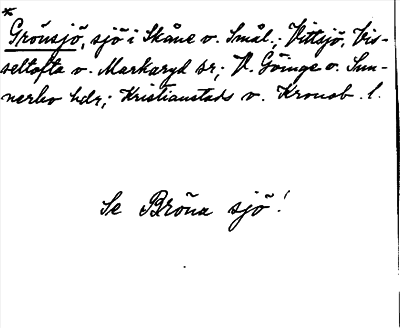 *
Grönsjö, sjö i Skåne o. Smål.; Vittsjö, Vis-
seltofta o. Markaryd sr; V. Göinge o. Sun-
nerbo hdr; Kristianstads o. Kronob. l.
Se Bröna sjö!